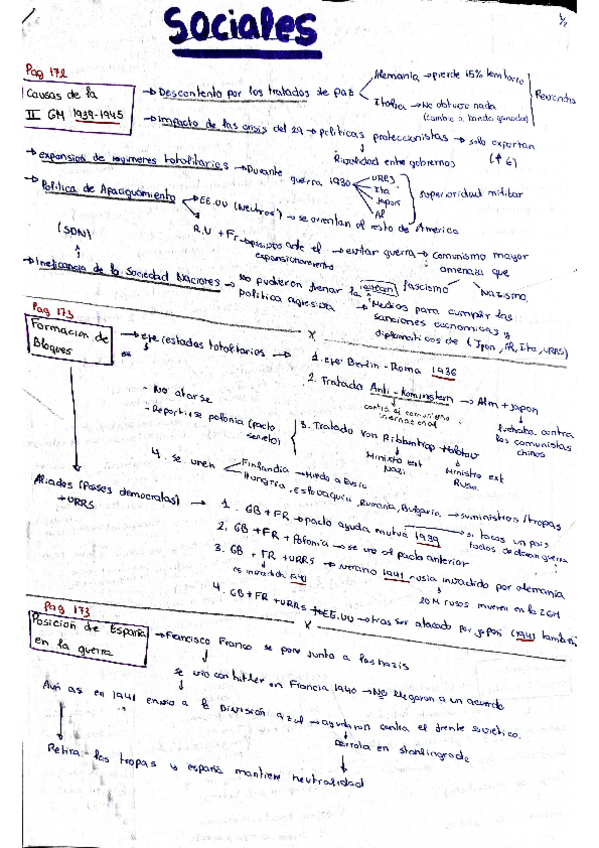 Sociales
1/2
Pag 172
Causas de la
II GM 1939-1945
→ Descontento por los tratados de paz
Alemania → pierde 15% territorio
Italia → No obtuvo nada
(cambio a bando ganador)
Revancha
→ Impacto de las crisis del 29 → políticas proteccionistas → solo exportan
Rivalidad entre gobiernos
(↑ €)
→ expansión de regímenes totalitarios → Durante guerra 1930
URRS
Ita
Japón
Al
superioridad militar
→ Política de Apaciguamiento
EE.UU (Neutros) → se orientan al resto de América
R.U + Fr → pasivos ante el expansionamiento → evitar guerra → comunismo mayor
amenaza que
fascismo
Nazismo
(SDN)
→ Ineficiencia de la Sociedad Naciones → No pudieron frenar la
política agresiva
→ Medios para cumplir las
sanciones económicas y
diplomáticas de (Jpon, Al, Ita, URRS)
x
Pag 173
Formación de
Bloques
→ eje (estados totalitarios →
1. eje Berlin-Roma 1936
2. Tratado Anti-Komintern → Alm + Japon
contra el comunismo
internacional
luchaba contra
los comunistas
chinos
- No atarse
- Repartirse polonia (pacto
secreto)
3. Tratado von Ribbentrop Molotov
Ministro ext
Nazi
Ministro ext
Rusia.
4. se unen
Finlandia → Miedo a Rusia
Hungria, eslovaquia, Rumania, Bulgaria → suministros/tropas
Aliados (Países democratas) →
+ URRS
1. GB + FR → pacto ayuda mutua 1939
si tocas un país
todos declaran guerra
2. GB + FR + Polonia → se une al pacto anterior
3. GB + FR + URRS → verano 1941 rusia invadida por alemania
es invadida
20 M rusos mueren en la 2GM
4. GB + FR + URRS + EE.UU → tras ser atacado por japon (1941 también
x
Pag 173
Posición de España
en la guerra
→ Francisco Franco se pone junto a los nazis
se vio con hitler en Francia 1940 → No llegaron a un acuerdo
Aun as en 1941 envio a la División azul → ayudaron contra el frente soviético.
Derrota en stanlingrado
Retira las tropas y españa mantiene neutralidad